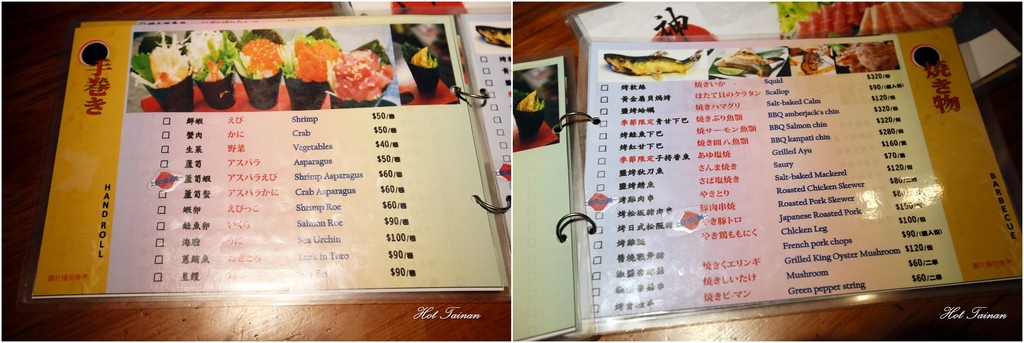 手巻き
HAND ROLL
鮮蝦 えび Shrimp $50/個
蟹肉 かに Crab $50/個
生菜 野菜 Vegetables $40/個
蘆筍 アスパラ Asparagus $50/個
蘆筍蝦 アスパラえび Shrimp Asparagus $60/個
蘆筍蟹 アスパラかに Crab Asparagus $60/個
蝦卵 えびっこ Shrimp Roe $60/個
鮭魚卵 いくら Salmon Roe $90/個
海膽 うに Sea Urchin $100/個
Toro $90/個
$90/個
圖片僅供參考
Hot Tainan
神
焼き物
BARBECUE
烤軟絲 焼きいか Squid $320/個
黃金扇貝焗烤 ほたて貝のクラタン Scallop $90/
鹽烤蛤蠣 焼きハマグリ Salt-baked Calm $120/個
季節限定青甘下巴 焼きぶり魚顎 BBQ amberjack's chin $320/個
烤鮭魚下巴 焼サーモン魚顎 BBQ Salmon chin $320/個
烤紅甘下巴 焼き間八魚顎 BBQ kanpati chin $280/個
季節限定子持香魚 あゆ塩焼き Grilled Ayu $160/個
鹽烤秋刀魚 さんま焼き Saury $70/個
鹽烤鯖魚 さば塩焼き Salt-baked Mackerel $120/個
烤雞肉串 やきとり Roasted Chicken Skewer
烤松坂豬肉串 豚肉串焼 Roasted Pork Skewer
烤日式松阪豬 やき豚トロ Japanese Roasted Pork $150/
烤雞腿 やき鶏ももにく Chicken Leg $100/個
French pork chops $90/
焼きくエリンギ Grilled King Oyster Mushroom $120/個
焼きしいたけ Mushroom $60/二串
焼きピーマン Green pepper string $60/二串
Hot Tainan